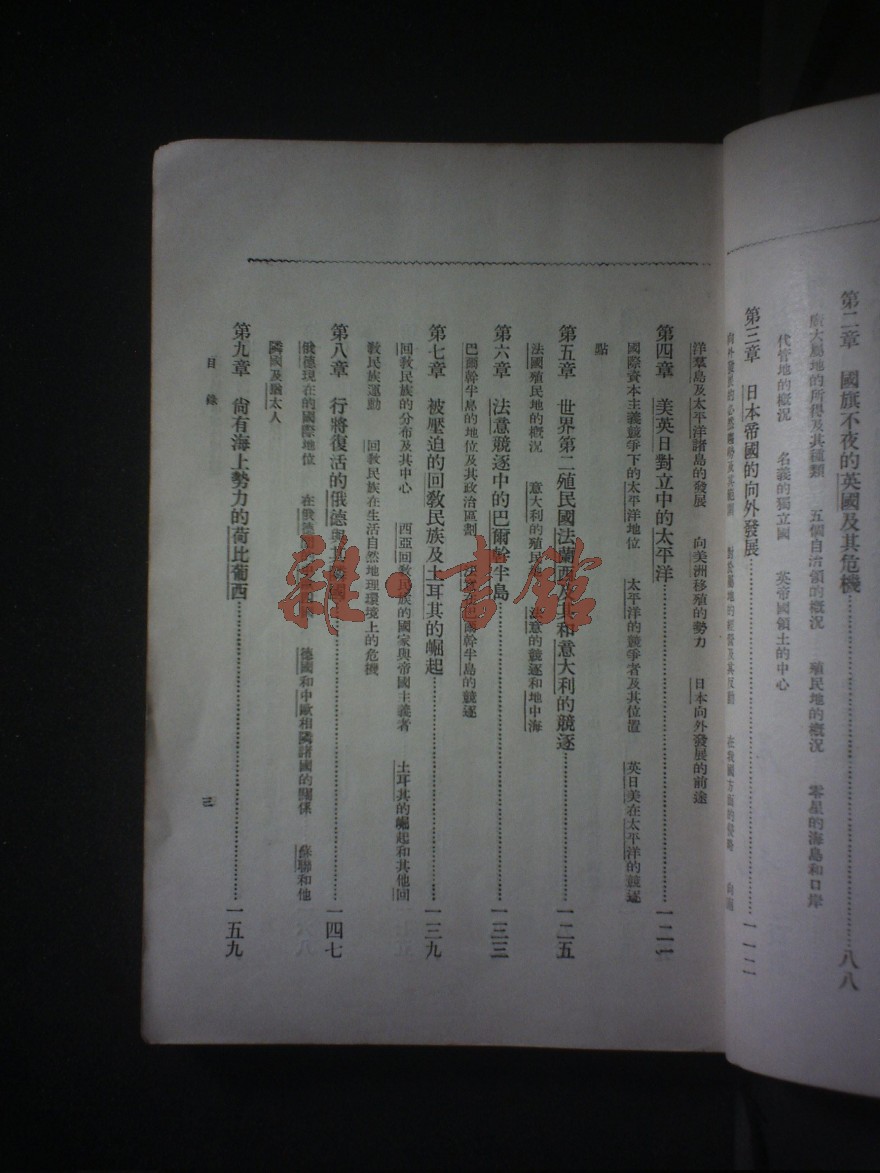 第二章　國旗不夜的英國及其危機……八八
廣大屬地的所得及其種類　五個自治領的概況　殖民地的概況　零星的海島和口岸
代管地的概況　名義的獨立國　英帝國領土的中心
第三章　日本帝國的向外發展……一一二
向外發展的必然趨勢及其範圍　對於屬地的經營及其反動　在我國方面的侵略　向南
洋羣島及太平洋諸島的發展　向美洲移殖的勢力　日本向外發展的前途
第四章　美英日對立中的太平洋……一二一
國際資本主義競爭下的太平洋地位　太平洋的競爭者及其位置　英日美在太平洋的競逐
點
第五章　世界第二殖民國法蘭西及其和意大利的競逐……一二五
法國殖民地的概況　意大利的殖民地　法意的競逐和地中海
第六章　法意競逐中的巴爾幹半島……一三三
巴爾幹半島的地位及其政治區劃　法意在巴爾幹半島的競逐
第七章　被壓迫的回教民族及土耳其的崛起……一三九
回教民族的分布及其中心　西亞回教民族的國家與帝國主義者　土耳其的崛起和其他回
教民族運動　回教民族在生活自然地理環境上的危機
第八章　行將復活的俄德與其鄰國……一四七
俄德現在的國際地位　在俄德　德國和中歐相隣諸國的關係　蘇聯和他
隣國及猶太人
第九章　尙有海上勢力的荷比葡西……一五九
目錄
三
雜·書館